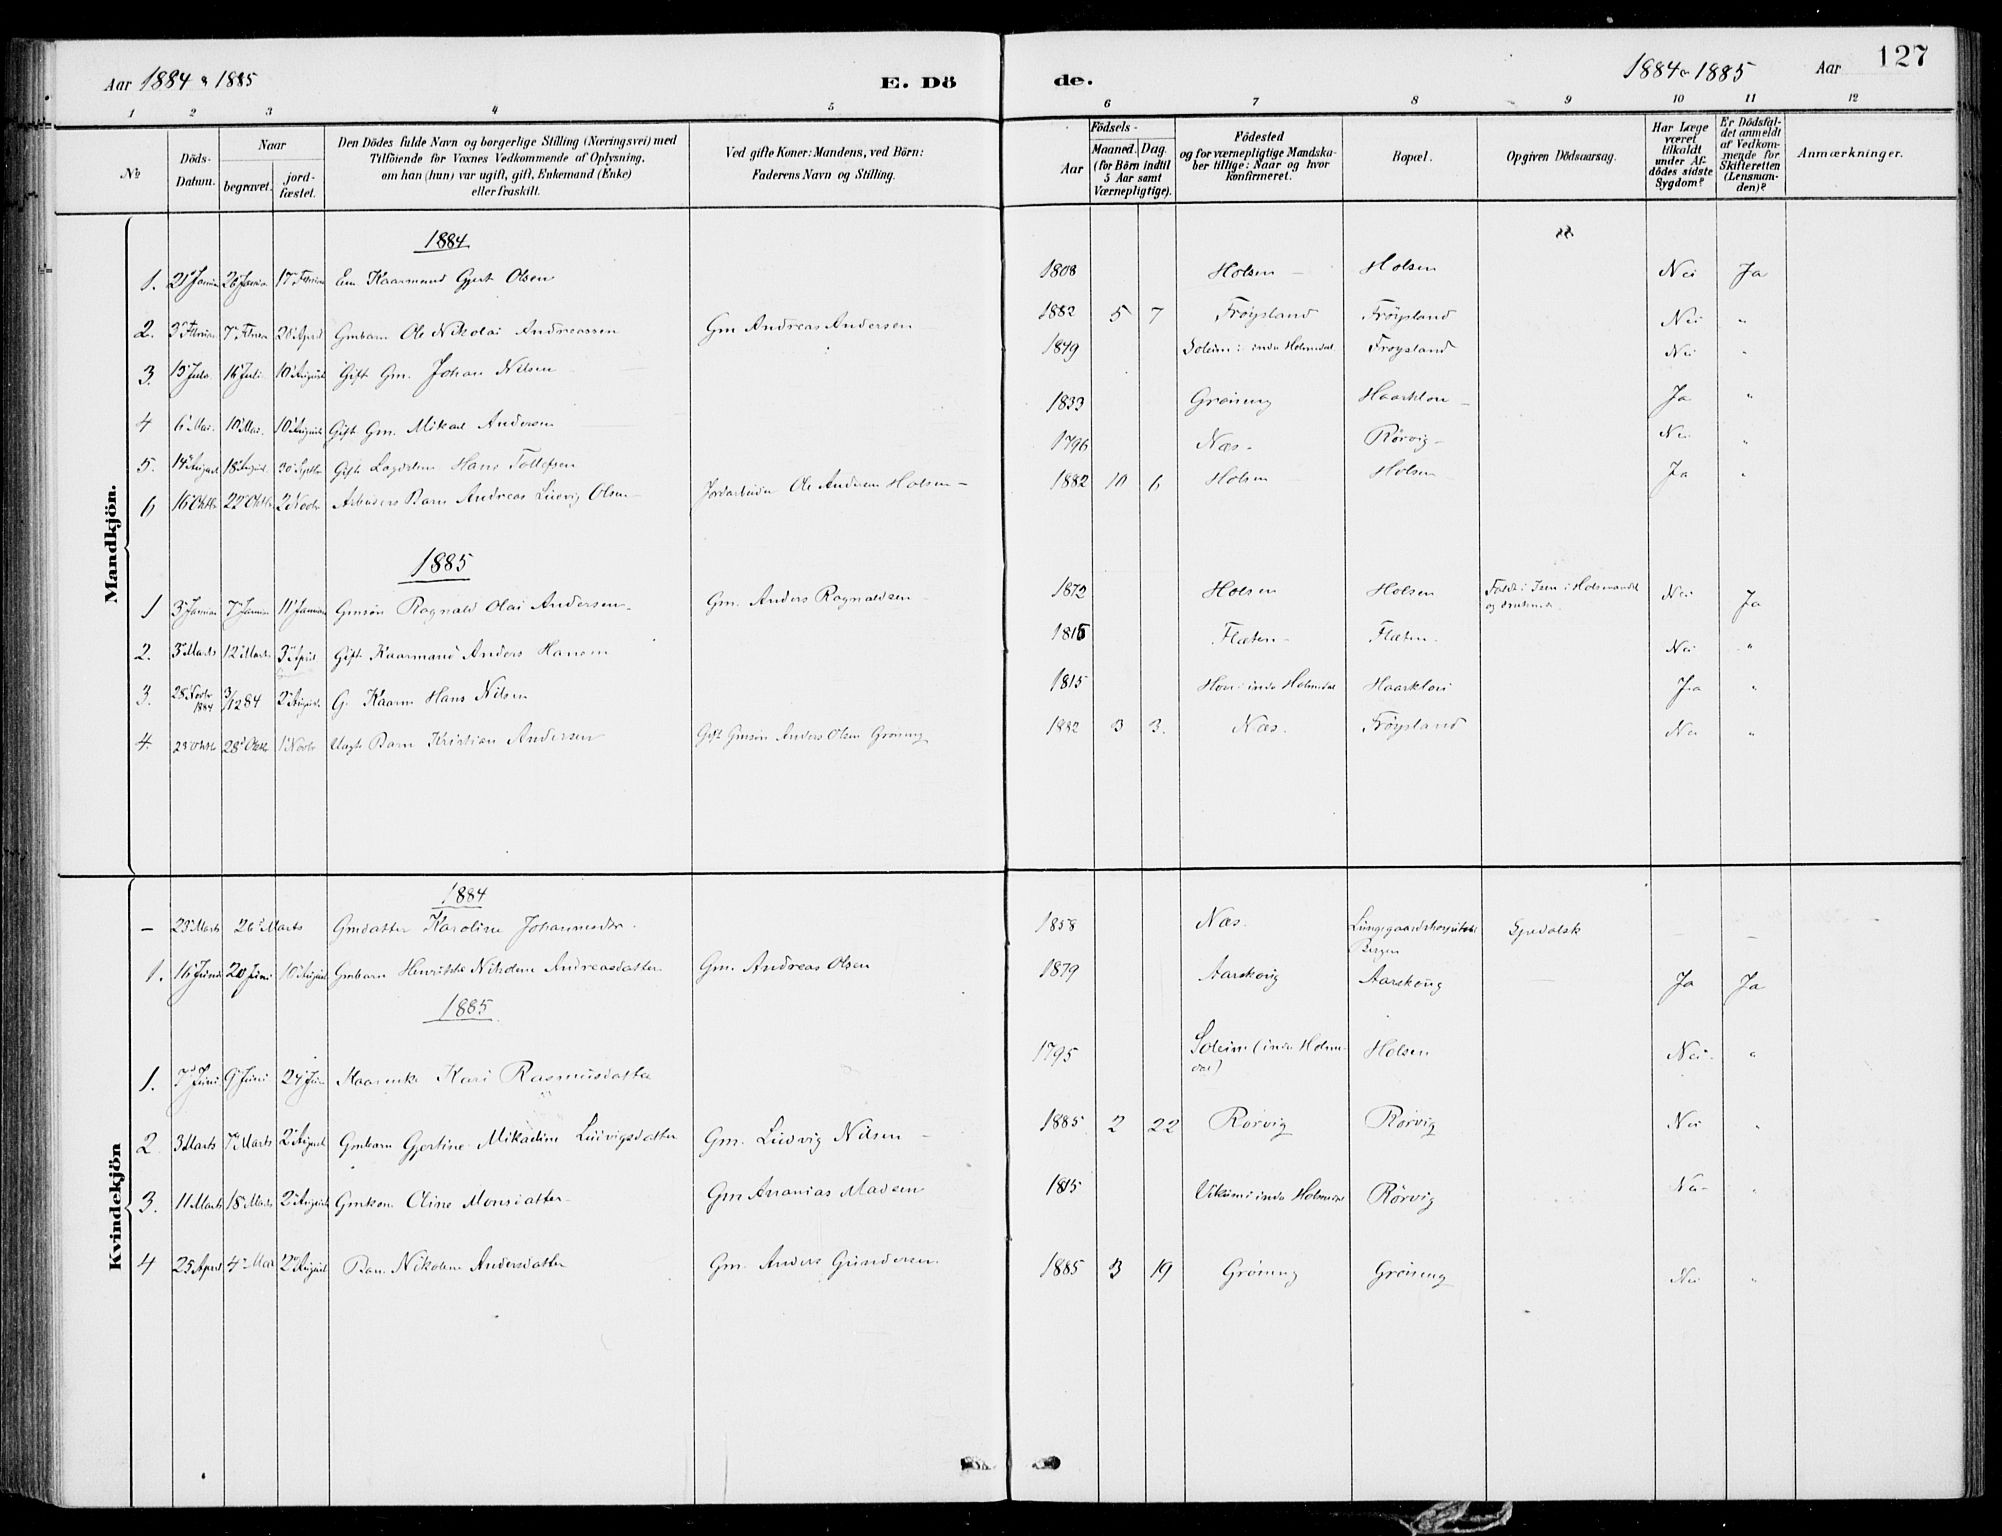 Aar 1884 & 1885 E. Dö
de. 1884 & 1885 Aar 127
1 2 3 4 5
6 7 8 9 10 11 12
№
Döds-
Datum.
Naar
begravet.
jord-
fæstet.
Den Dödes fulde Navn og borgerlige Stilling (Næringsvei) med
Tilföiende for Voxnes Vedkommende af Oplysning,
om han (hun) var ugift, gift, Enkemand (Enke)
eller fraskilt.
Ved gifte Koner: Mandens, ved Börn:
Faderens Navn og Stilling.
Födsels-
Aar
Maaned. Dag.
(for Börn indtil
5 Aar samt
Værnepligtige).
Födested
og for værnepligtige Mandska-
ber tillige: Naar og hvor
konfirmeret.
Bopæl.
Opgiven Dödsaarsag.
Har Læge
været
tilkaldt
under Af-
dödes sidste
Sygdom?
Er Dödsfal-
det anmeldt
af Vedkom-
mende for
Skifteretten
(Lensman-
den)?
Anmærkninger.
Mandkjön.
1884
1. Em Kaarmand Gjert Olsen 1808 Holsen Holsen Nei Ja
2. Gmbarn Ole Nikolai Andreassen Gm Andreas Andersen 1882 5 7 Fröysland Fröysland Nei "
3. 16 Juli 10 August Gift Gm. Johan Nilsen 1849 Soleim i indre Holmedal Froysland Nei "
4 6 Mai. 10 Mai. 10 August Gift Gm. Mikael Andersen 1833 Gröning Ja "
5. 14 August 18 August 30 Septbr Gift Hans Tollefsen 1796 Næs Rörvig Nei "
6 16 Oktbr 22 Oktbr 2 Novbr Arbeiders Barn Andreas Ludvig Olsen Ole Andersen Holsen 1882 10 6 Holsen Holsen Ja "
1885
1 3 Januar 7 Januar 11 Januar Gmsön Ragnald Olai Andersen Gm. Anders Ragnaldsen 1872 Holsen Holsen Faldt i Isen i Holsevandet
og druknede. Nei Ja
2. 3 Marts 12 Marts 3 April Gift Kaarmand Anders Hansen 1815 Flæten Flæten. Nei "
3. 28 Novbr
1884 3/12 84 2 August G. Kaarm Hans Nilsen 1815 i indre Holmedal Ja "
4 23 Oktbr 28 Oktbr 1 Novbr Uægte Barn Kristian Andersen Gift Gmsön Anders Olsen Gröning 1882 3 3. Næs. Fröysland Nei "
Kvindekjön
1884
– 23 Marts 26 Marts Gmdatter Karoline Johannesdtr. 1858 Næs. Lungegaardshospitalet
Bergen Spedalsk – –
1. 16 Juni 20 Juni 10 August Gmbarn Henrikke Nikoline Andreasdatter Gm. Andreas Olsen 1879 Aarskoug Aarskoug Ja Ja
1885
1. 7 Juni 9 Juni 24 Juni Kari Rasmusdatter 1795 Soleim (indre Holme-
dal) Holsen Nei "
2 3 Marts 7 Marts 2 August Gmbarn Gjertine Mikaline Ludvigsdatter Gm. Ludvig Nilsen 1885 2 22 Rörvig Rörvig Nei "
3. 11 Marts 18 Marts 2 August Gmkone Oline Monsdatter Gm Ananias Madsen 1815 i indre Holmedal Rörvig Nei "
4 25 April 4 Mai 2 August Barn Nikoline Andersdatter Gm. Anders Gundersen. 1885 3 19 Gröning Gröning Nei "